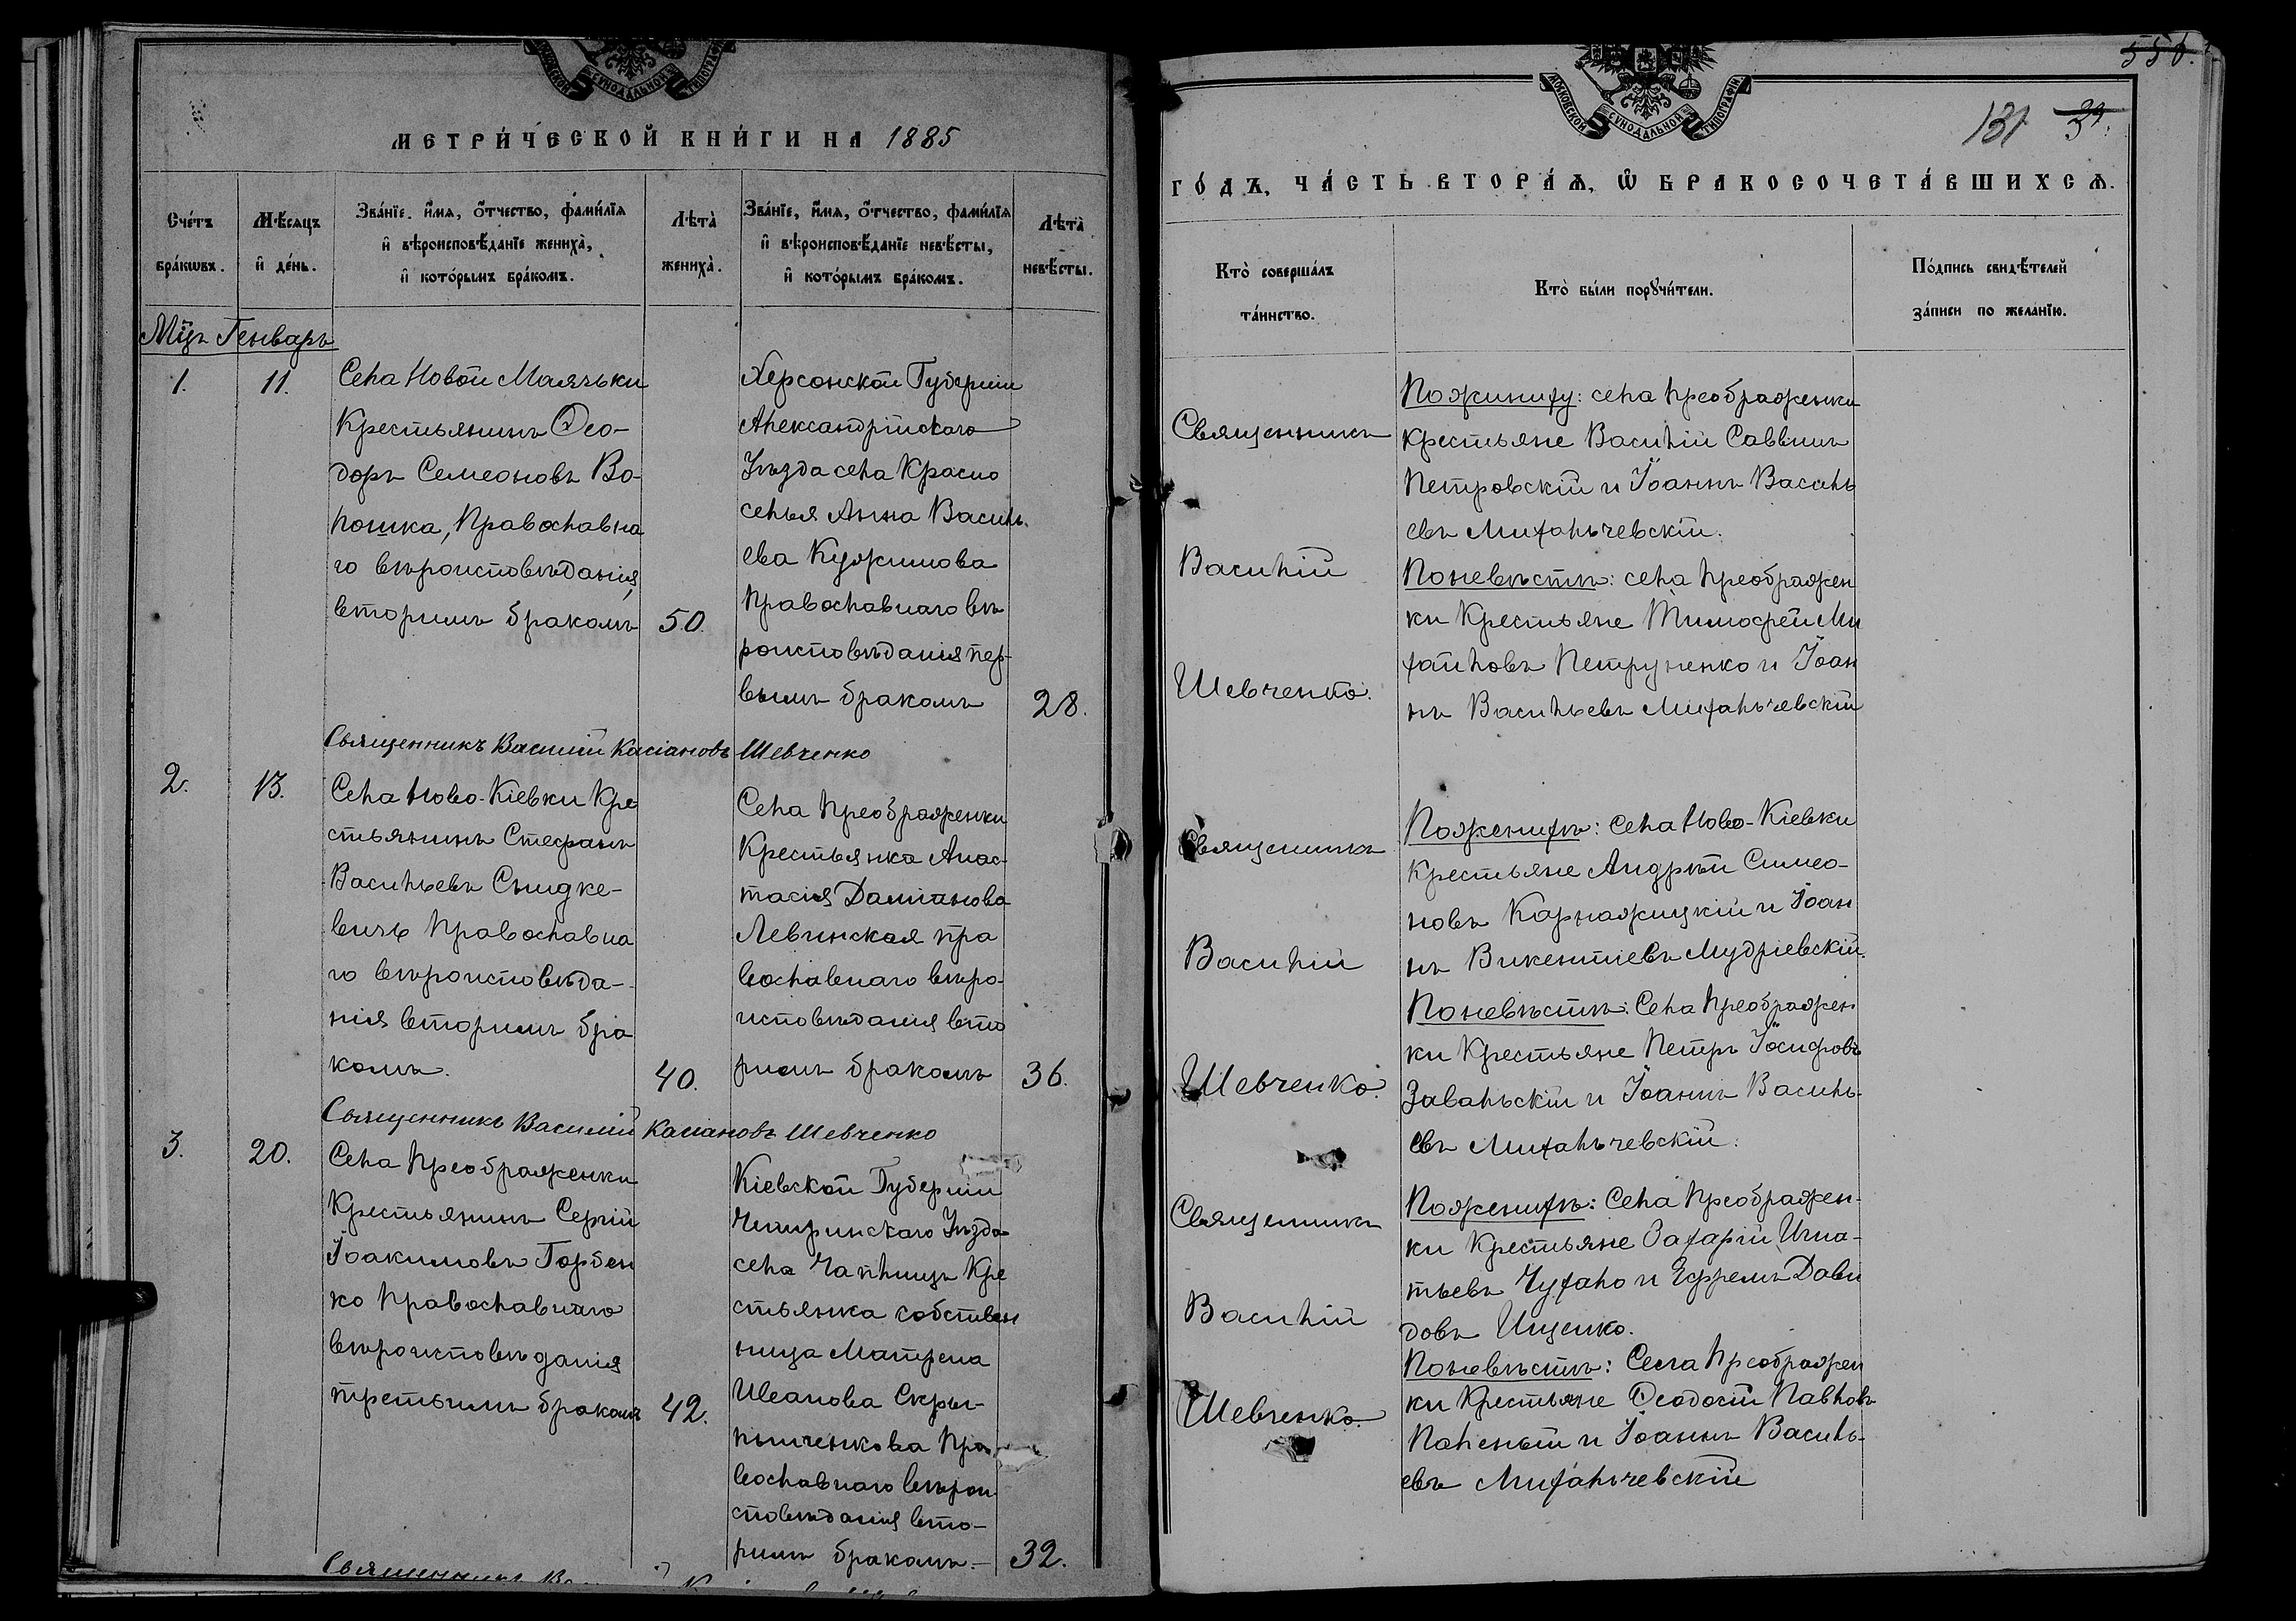 МОСКОВСКОЙ СѴНОДАЛЬНОЙ ТИПОГРАФІИ
МЕТРИ́ЧЕСКОЙ КНИ́ГИ НА 1885
Сче́тъ бра́кѡвъ.
Мѣ́сяцъ и҆ де́нь.
Зва́нїе, и҆́мѧ, ѻ҆́тчество, фами́лїѧ
и҆ вѣроисповѣ́данїе жениха̀,
и҆ кото́рымъ бра́комъ.
Лѣта̀ жениха̀.
Зва́нїе, и҆́мѧ, ѻ҆́тчество, фами́лїѧ
и҆ вѣроисповѣ́данїе невѣ́сты,
и҆ кото́рымъ бра́комъ.
Лѣта̀ невѣ́сты.
Мц̃ъ Генваръ
1.
11.
Села Новой Маячьки
Крестьянинъ Ѳео-
доръ Семеоновъ Во-
лошка, Православна
го вѣроисповѣданія,
вторимъ бракомъ
50.
Херсонской Губерніи
Александрійскаго
Уѣзда села Красно
селья Анна Василь-
ева Кужимова
Православнаго вѣ
роисповѣданія пер-
вымъ бракомъ
28.
Священникъ Василій Касіановъ Шевченко
2.
13.
Села Ново-Кіевки Кре
стьянинъ Стефанъ
Васильевъ Снидке-
вичъ Православна
го вѣроисповѣда-
нія вторимъ бра
комъ.
40.
Села Преображенки
Крестьянка Анас-
тасія Даміанова
Левинская пра
вославнаго вѣро-
исповѣданія вто
римъ бракомъ
36.
Священникъ Василій Касіановъ Шевченко
3.
20.
Села Преображенки
Крестьянинъ Сергій
Іоакимовъ Горбен
ко Православнаго
вѣроисповѣданія
третьимъ бракомъ
42.
Кіевской Губерніи
Чигиринскаго Уѣзда
села Чаплищъ Кре
стьянка собствен
ница Матрена
Иванова Скры-
пыченкова Пра-
вославнаго вѣрои
сповѣданія вто-
римъ бракомъ.-
32.
МОСКОВСКОЙ СѴНОДАЛЬНОЙ ТИПОГРАФІИ
131
ГО́ДЪ, ЧА́СТЬ ВТОРА́Ѧ, Ѽ БРАКОСОЧЕТА́ВШИХСѦ.
Кто̀ соверша́лъ та́инство.
Кто̀ бы́ли порꙋчи́тели.
По́дпись свидѣ́телей
за́писи по жела́нїю.
Священникъ
Василій
Шевченко.
Пожиниху: села Преображенки
крестьяне Василій Саввинъ
Петровскій и Іоаннъ Василь
евъ Михальчевскій.
Поневѣстѣ: села Преображен
ки Крестьяне Тимофей Ми
хайловъ Петруненко и Іоан
нъ Васильевъ Михальчевскій
Священникъ
Василій
Шевченко.
Поженихѣ: Села Ново-Кіевки
Крестьяне Андрѣй Симео-
новъ Карнажицкій и Іоан
нъ Викентіевъ Мудріевскій.
Поневѣстѣ: Села Преображен
ки Крестьяне Петръ Іосифовъ
Завальскій и Іоаннъ Василь-
евъ Михальчевскій.
Священникъ
Василій
Шевченко
Поженихѣ: Села Преображен-
ки Крестьяне Захарій Игна-
тьевъ Чухало и Ефремъ Дави
довъ Ищенко.
Поневѣстѣ: Села Преображен
ки Крестьяне Ѳеодосій Павловъ
Паленый и Іоаннъ Василь-
евъ Михальчевскій